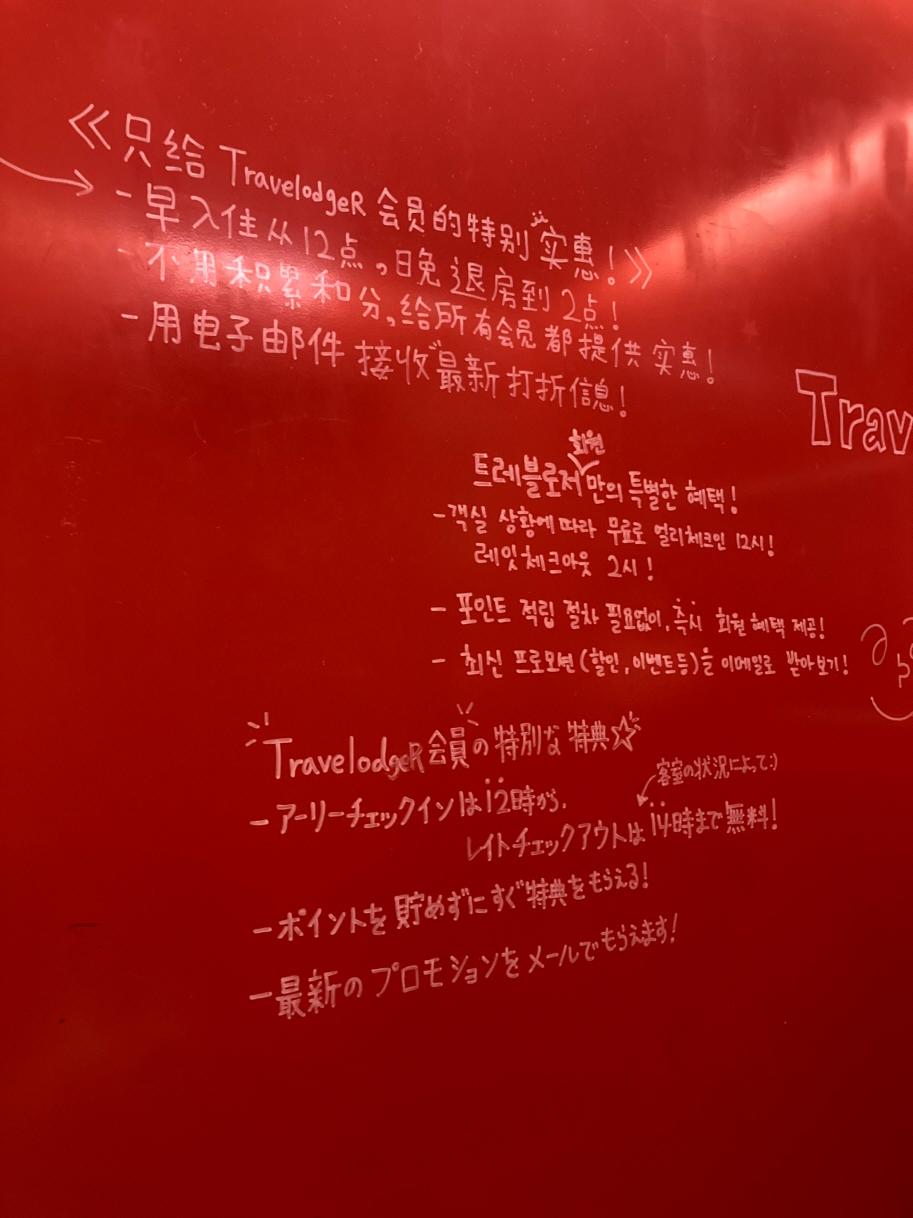 《只给 TravelodgeR 会员的特别实惠!》
- 早入住从12点,晚退房到2点!
- 不用积累和分,给所有会员都提供实惠!
- 用电子邮件接收最新打折信息!
Trav
회원
트레블로저만의 특별한 혜택!
- 객실 상황에 따라 무료로 얼리체크인 12시!
레잇체크아웃 2시!
- 포인트 적립 절차 필요없이, 즉시 회원 혜택 제공!
- 최신 프로모션(할인, 이벤트등)을 이메일로 받아보기!
TravelodgeR会員の特別な特典☆
客室の状況によって:)
- アーリーチェックインは12時から,
レイトチェックアウトは14時まで無料!
- ポイントを貯めずにすぐ特典をもらえる!
- 最新のプロモションをメールでもらえます!